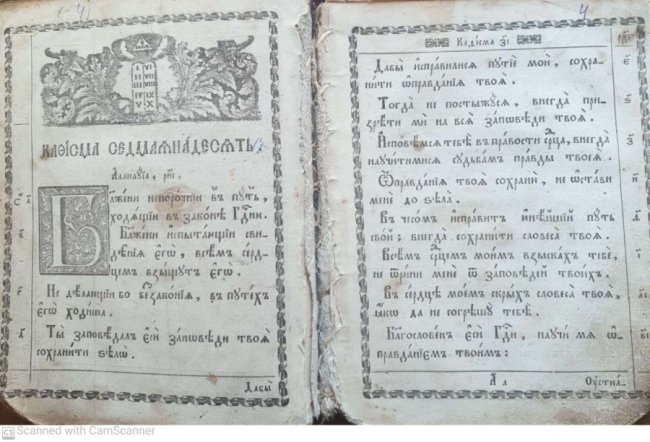 КАѲІСМА СЕДМАѦНАДЕСѦТЬ
Аллилꙋіа, рн҃і.
Бл҃жени непорочнїи въ пꙋть,
ходѧщїи въ законѣ Гдⷭ҇ни.
Бл҃жени испытающїи сви-
дѣнїѧ є҆гѡ̀, всѣмъ сер-
цемъ взыщꙋтъ є҆гѡ̀.
Не дѣлающїи бо беззаконїѧ, в пꙋтехъ
є҆гѡ̀ ходиша.
Ты̀ заповѣдалъ є҆сѝ заповѣди твоѧ̀
сохранити ѕѣлѡ̀
Дабы̀
4
Каѳісма з҃і
Дабы̀ и҆справилисѧ пꙋтїє мои̂, сохра-
нити ѡ҆правданїѧ твоѧ̀.
Тогда̀ не постыжꙋсѧ, внегда̀ при-
зрѣти ми на всѧ̑ заповѣди твоѧ̀.
И҆сповѣмсѧ тебѣ̀ в правости срⷣца, внегда̀
наꙋчитимисѧ сꙋдьбамъ правды твоеѧ̀.
Ѡ҆правданїѧ твоѧ̀ сохраню̀, не ѡ҆стави
мене до ѕѣла̀.
Въ чесомъ и҆справитъ юнѣйшїй пꙋть
свой; внегда̀ сохранити словеса̀ твоѧ̀
Всѣмъ срⷣцемъ моимъ взыскахъ тебѐ,
не ѿрини мене ѿ заповѣдей твоихъ.
Въ сердце моемъ скрыхъ словеса̀ твоѧ̀,
ꙗ҆кѡ да не согрѣшꙋ тебѣ̀.
Благословенъ є҆сѝ Гдⷭ҇и, наꙋчи мѧ ѡ҆-
правданїємъ твоимъ:
Оустна-
CS Scanned with CamScanner